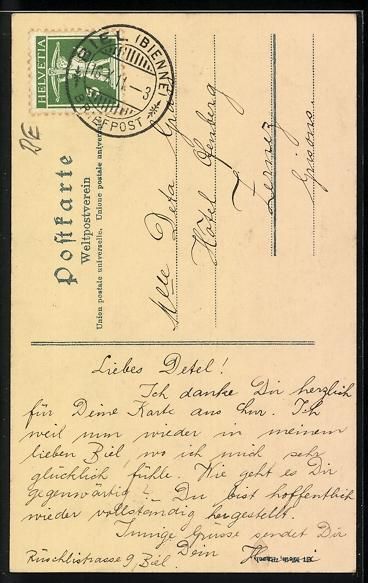 HELVETIA
5
BIEL (BIENNE)
BRIEFPOST
Postkarte
Weltpostverein
Union postale universelle. Unione postale universale
Mlle Deta
Hôtel
Zernez
Grisons.
Liebes Detel!
Ich danke Dir herzlich
für Deine Karte aus Chur. Ich
weil nun wieder in meinem
lieben Biel, wo ich mich sehr
glücklich fühle. Wie geht es Dir
gegenwärtig? Du bist hoffentlich
wieder vollständig hergestellt.
Innige Grüsse sendet Dir
Dein
Rüschlistrasse 9, Biel.